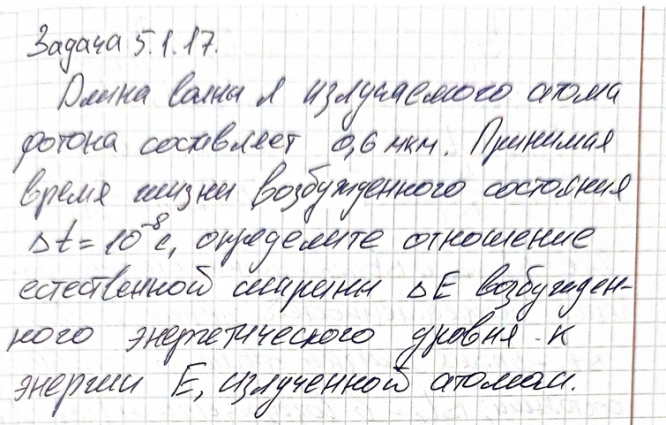 Задача 5.1.17.
Длина волны λ излучаемого атома
фотона составляет 0,6 мкм. Принимая
время жизни возбужденного состояния
Δt = 10⁻⁸ с, определите отношение
естественной ширины ΔE возбужден-
ного энергетического уровня к
энергии E, излученной атомом.